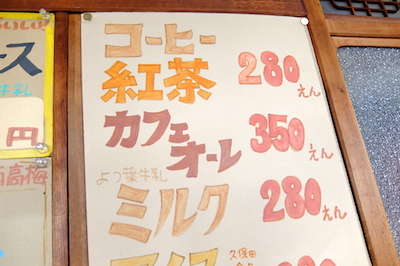 コーヒー
紅茶 280えん
カフェ
オーレ 350えん
よつ葉牛乳
ミルク 280えん
久保田
ース
牛乳
円
高梅